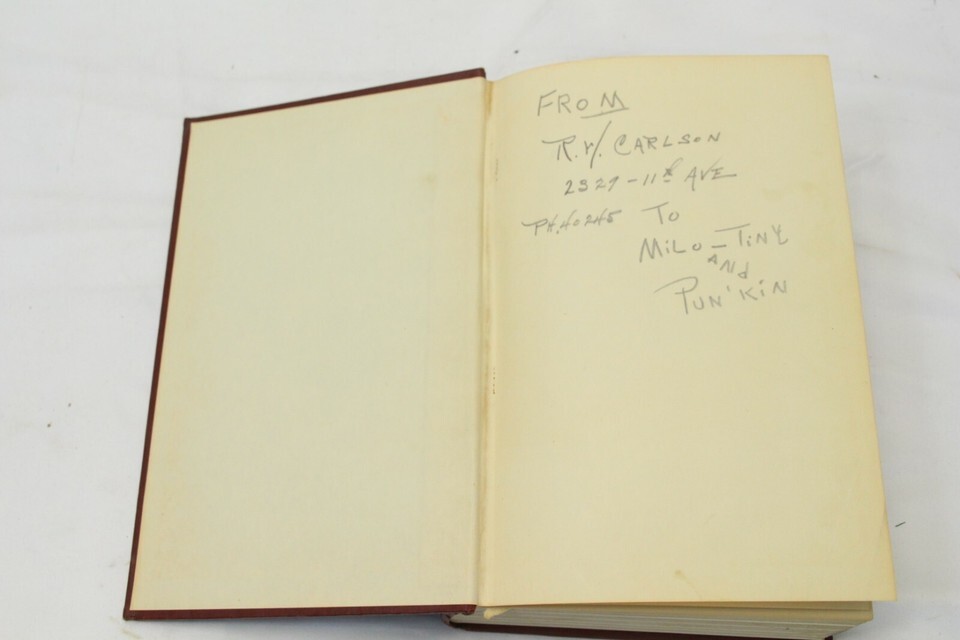 FROM
R.W. CARLSON
2329-11th AVE
PH.40245 TO
MiLO-TiNY
AND
PUN'KiN